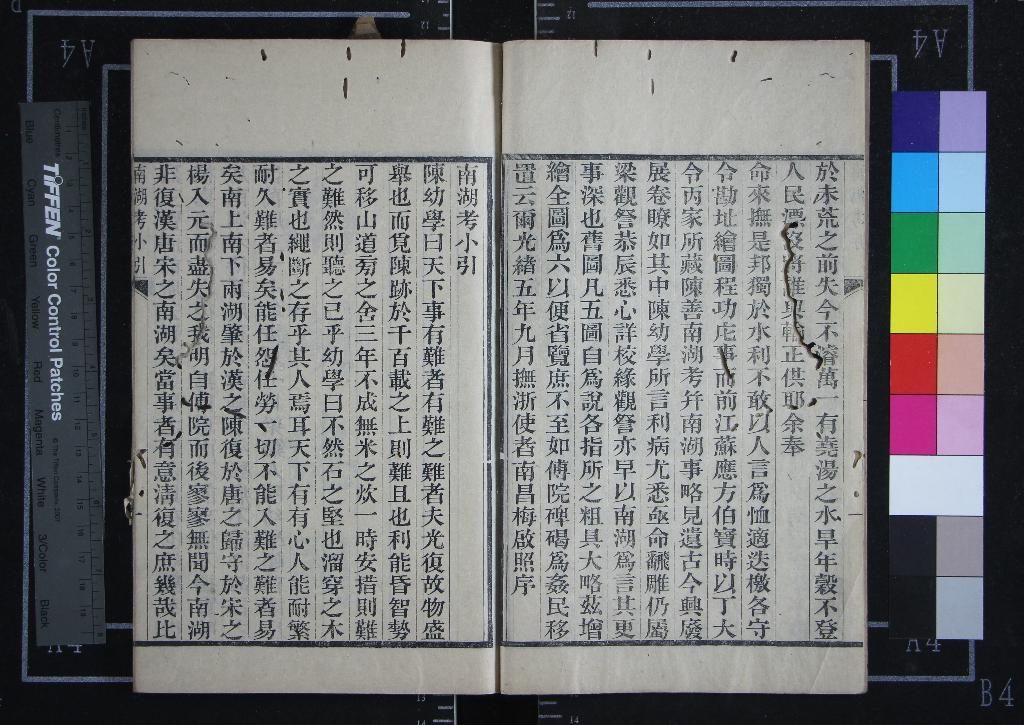 於未荒之前失今不濬萬一有堯湯之水旱年穀不登
人民漂沒將誰與輸正供耶余奉
命來撫是邦獨於水利不敢以人言爲恤適迭檄各守
令勘址繪圖程功庀事而前江蘇應方伯寶時以丁大
令丙家所藏陳善南湖考幷南湖事略見遺古今興廢
展卷瞭如其中陳幼學所言利病尤悉亟命翻雕仍屬
梁觀詧恭辰悉心詳校緣觀詧亦早以南湖爲言其更
事深也舊圖凡五圖自爲說各指所之粗具大略茲增
繪全圖爲六以便省覽庶不至如傅院碑碣爲姦民移
置云爾光緒五年九月撫浙使者南昌梅啟照序
南湖考小引
陳幼學曰天下事有難者有難之難者夫光復故物盛
舉也而覓陳跡於千百載之上則難且也利能昏智勢
可移山道旁之舍三年不成無米之炊一時安措則難
之難然則聽之已乎幼學曰不然石之堅也溜穿之木
之實也繩斷之存乎其人焉耳天下有有心人能耐繁
耐久難者易矣能任怨任勞一切不能入難之難者易
矣南上南下兩湖肇於漢之陳復於唐之歸守於宋之
楊入元而盡失之我明自傅院而後寥寥無聞今南湖
非復漢唐宋之南湖矣當事者有意淸復之庶幾哉比
南湖考小引
A4
A4
B4
TIFFEN Color Control Patches
Blue
Cyan
Green
Yellow
Red
Magenta
White
3/Color
Black